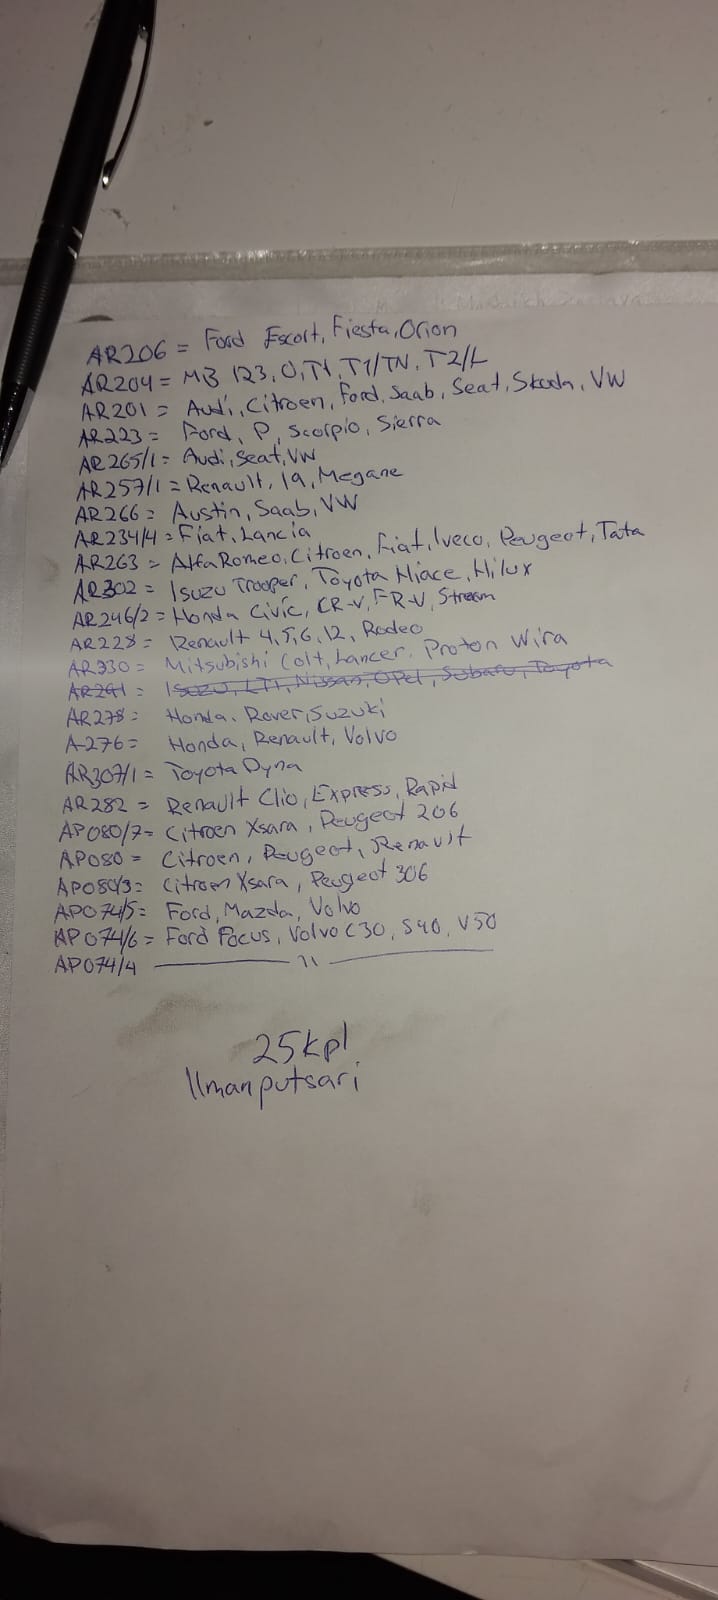 AR206 = Ford Escort, Fiesta, Orion
AR204 = MB 123, O, T1, T1/TN, T2/L
AR201 = Audi, Citroen, Ford, Saab, Seat, Skoda, VW
AR223 = Ford, P, Scorpio, Sierra
AR265/1 = Audi, Seat, VW
AR257/1 = Renault, 19, Megane
AR266 = Austin, Saab, VW
AR234/4 = Fiat, Lancia
AR263 = Alfa Romeo, Citroen, Fiat, Iveco, Peugeot, Tata
AR302 = Isuzu Trooper, Toyota Hiace, Hilux
AR246/2 = Honda Civic, CR-V, FR-V, Stream
AR228 = Renault 4, 5, 6, 12, Rodeo
AR330 = Mitsubishi Colt, Lancer. Proton Wira
AR291 = Isuzu, LTI, Nissan, Opel, Subaru, Toyota
AR278 = Honda. Rover, Suzuki
A-276 = Honda, Renault, Volvo
AR307/1 = Toyota Dyna
AR282 = Renault Clio, Express, Rapid
AP080/7 = Citroen Xsara, Peugeot 206
AP080 = Citroen, Peugeot, Renault
AP080/3 = Citroen Xsara, Peugeot 306
AP074/5 = Ford, Mazda, Volvo
AP074/6 = Ford Focus, Volvo C30, S40, V50
AP074/4 ——— 11 ———
25 kpl
Ilmanputsari